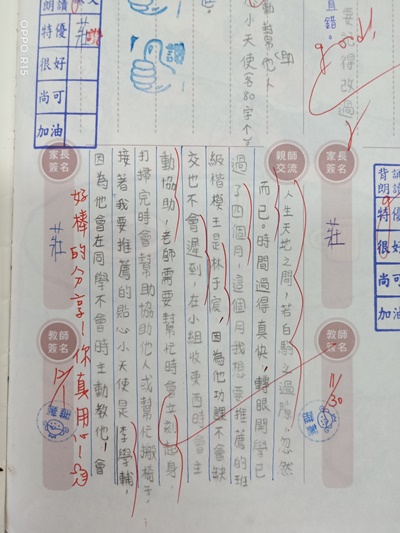 要記得改過
直錯。
good!
動幫忙他人
心小天使(答80字
家長簽名
莊
教師簽名
11/30
親師交流
人生天地之間,若白駒之過隙,忽然
而已。時間過得真快,轉眼開學已
過了四個月,這個月我想要推薦的班
級楷模王是林子宸,因為他功課不會缺
交也不會遲到,在小組收東西時會主
動協助,老師需要幫忙時會立刻起身,
打掃完時會幫助協助他人或幫忙搬椅子,
接著我要推薦的貼心小天使是李學輔,
因為他會在同學不會時主動教他,會
好棒的分享!你真用心!
家長簽名
莊
教師簽名
12/1
朗讀
特優
很好
尚可
加油
莊
背誦
朗讀
特優
很好
尚可
加油
OPPO R15